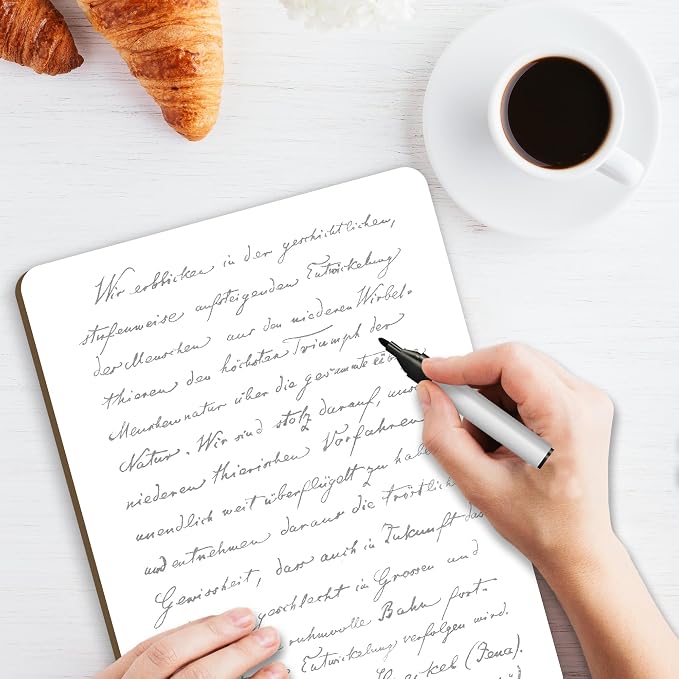 Wir erblicken in der geschichtlichen,
stufenweise aufsteigenden Entwickelung
der Menschen aus den niederen Wirbel-
thieren den höchsten Triumph der
Menschennatur über die gesammte
Natur. Wir sind stolz darauf, uns
niederen thierischen Vorfahren
unendlich weit überflügelt zu hab
und entnehmen daraus die tröstlich
Gewissheit, dass auch in Zukunft das
geschlecht im Grossen und
ruhmvolle Bahn fort-
Entwickelung verfolgen wird.
(Jena).